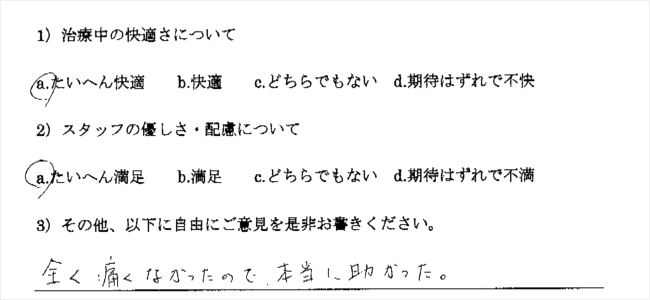 1) 治療中の快適さについて
a.たいへん快適 b.快適 c.どちらでもない d.期待はずれで不快
2) スタッフの優しさ・配慮について
a.たいへん満足 b.満足 c.どちらでもない d.期待はずれで不満
3) その他、以下に自由にご意見を是非お書きください。
全く痛くなかったので、本当に助かった。